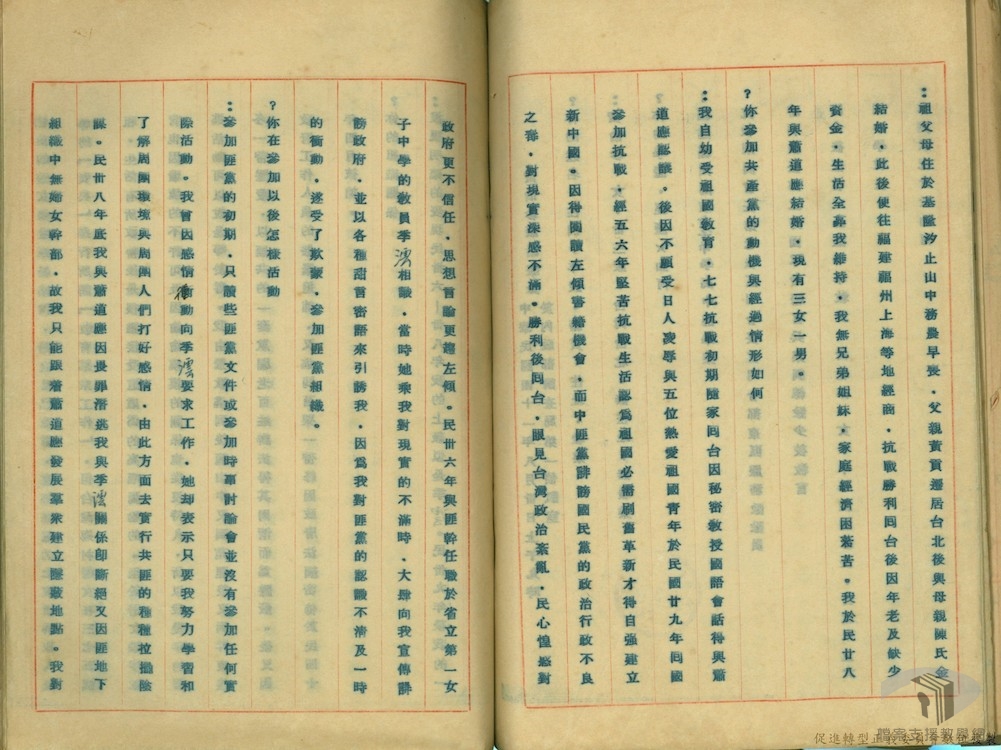 ：祖父母住於基隆汐止山中務農早喪，父親黃賣遷居台北後與母親陳氏金
結婚，此後便往福建福州上海等地經商，抗戰勝利囘台後因年老及缺少
資金，生活全靠我維持，我無兄弟姐妹，家庭經濟困難苦。我於民廿八
年與蕭道應結婚，現有三女一男。
？你參加共產黨的動機與經過情形如何
：我自幼受祖國教育，七七抗戰初期隨家囘台因秘密教授國語會話得與蕭
道應認識。後因不願受日人凌辱與五位熱愛祖國青年於民國廿九年囘國
參加抗戰，經五六年堅苦抗戰生活認爲祖國必需刷舊革新才得自强建立
新中國。因得閱讀左傾書籍機會，而中匪黨誹謗國民黨的政治行政不良
之毒，對現實深感不滿。勝利後囘台，眼見台灣政治紊亂，民心惶惑對
政府更不信任，思想言論更趨左傾。民卅六年與匪幹任職於省立第一女
子中學的教員季澐相識，當時她乘我對現實的不滿時，大肆向我宣傳誹
謗政府，並以各種甜言密語來引誘我，因爲我對匪黨的認識不淸及一時
的衝動，遂受了欺蒙，參加匪黨組織。
？你在參加以後怎樣活動
：參加匪黨的初期，只讀些匪黨文件或參加時事討論會並沒有參加任何實
際活動。我曾因感情衝動向季澐要求工作，她却表示只要我努力學習和
了解周圍環境與周圍人們打好感情，由此方面去實行共匪的種種拉攏陰
謀。民卅八年底我與蕭道應因畏罪潛逃我與季澐關係卽斷絕又因匪地下
組織中無婦女幹部，故我只能跟着蕭道應發展羣衆建立匿蔽地點。我對
檔案支援教學網
促進轉型正義委員會